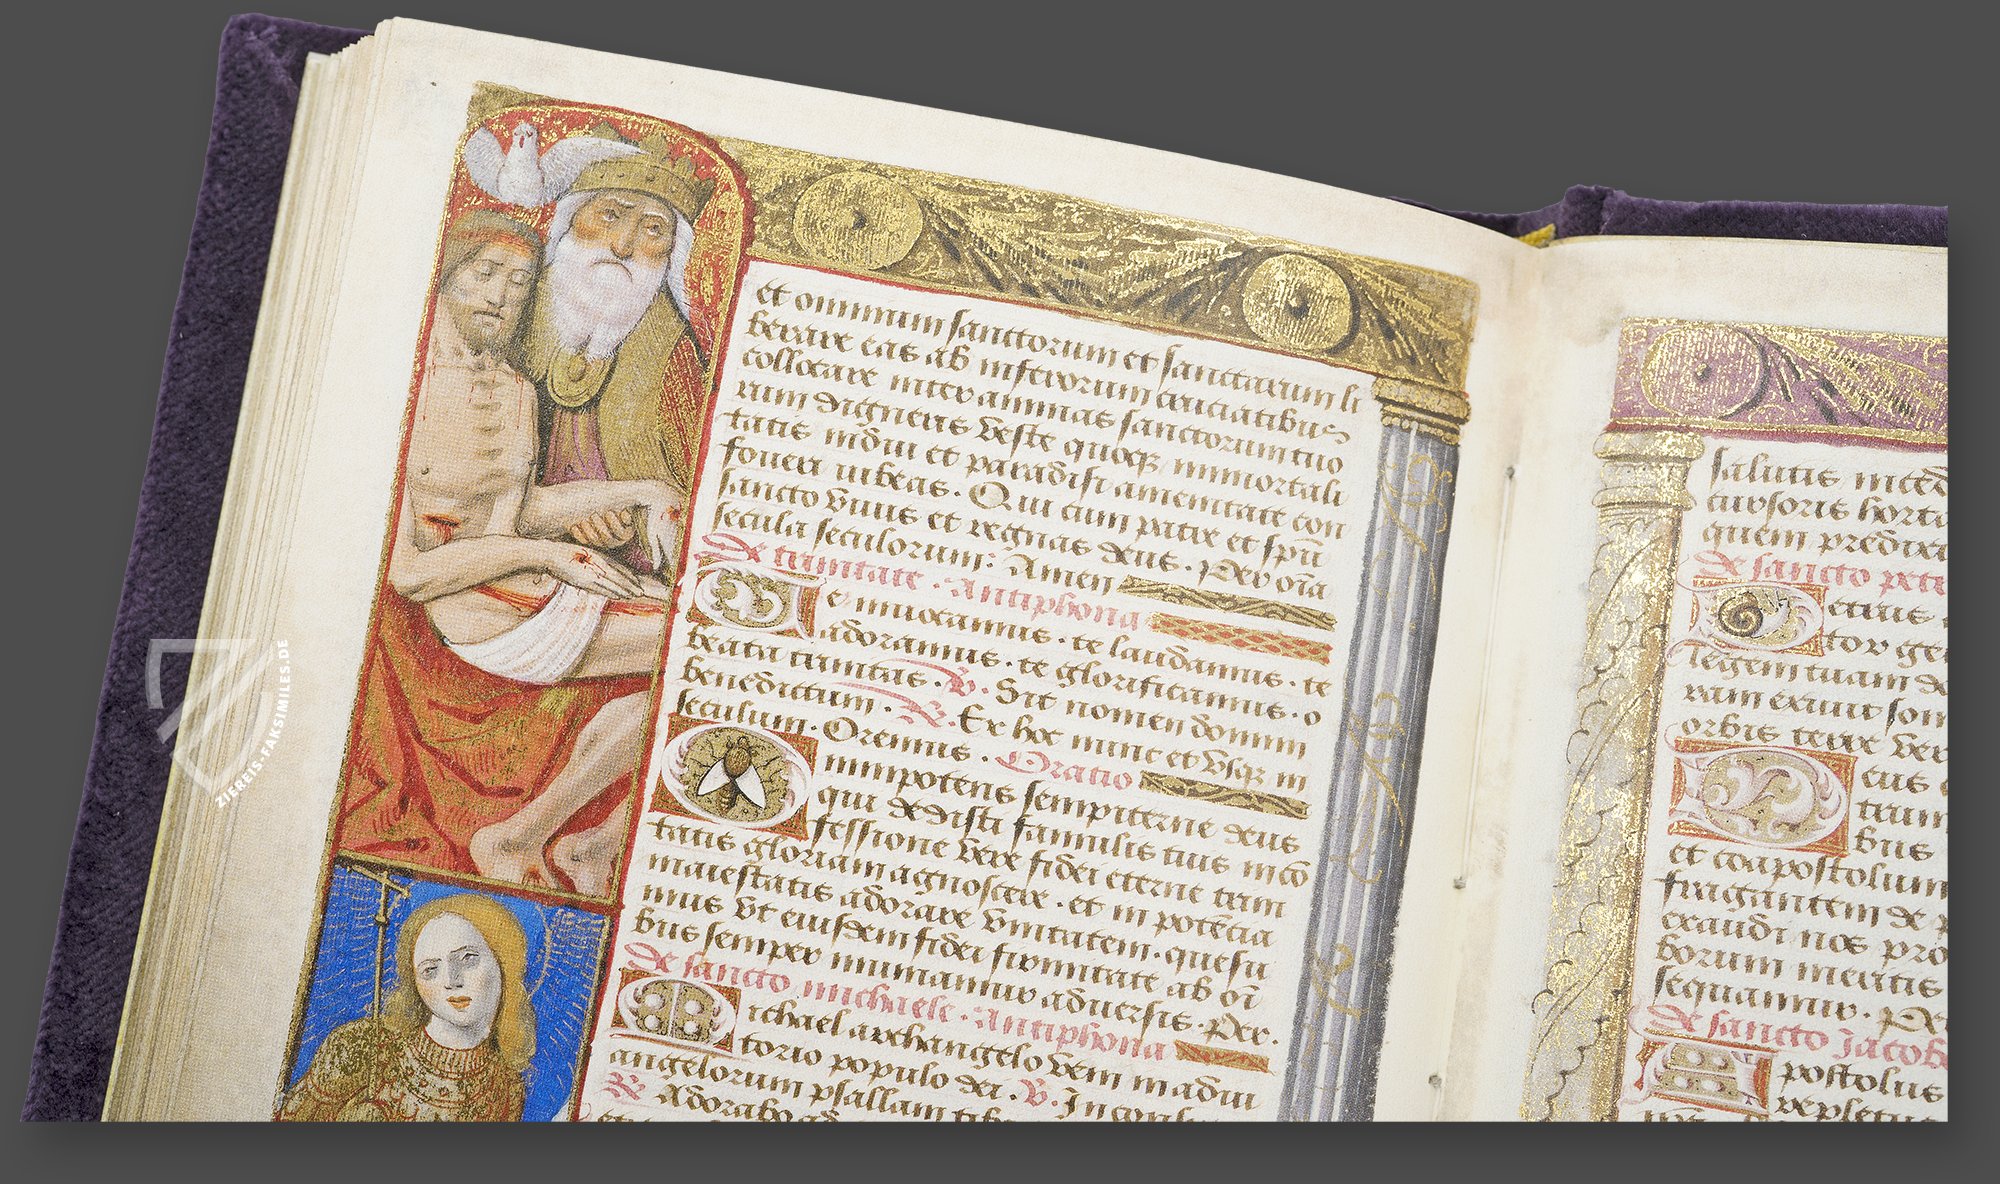 et omnium sanctorum et sanctarum li
berare eas ab infernorum cruciatibus
collocare inter animas sanctorum tuo
rum digneris veste quoqz immortali
tatis indui et paradisi amenitate con
foueri iubeas. Qui cum patre et spū
sancto viuis et regnas deus. Per oīa
secula seculorum: Amen
De trinitate. Antiphona
Te inuocamus. te
adoramus. te laudamus. te glorificamus. o
beata trinitas. V. Sit nomen domini
benedictum. R. Ex hoc nunc et vsqz in
seculum. Oremus. Oratio
Omnipotens sempiterne deus
qui dedisti famulis tuis in cō
fessione vere fidei eterne trini
tatis gloriam agnoscere. et in potēcia
maiestatis adorare vnitatem. quesu
mus vt eiusdem fidei firmitate ab oī
bus semper muniamur aduersis. Per.
De sancto michaele. Antiphona
Michael archangelo veni in adiu
torio populo dei. V. In conspectu
angelorum psallam tibi
R. Adorabo ad
salutis
cursoris
quem
De sancto petr
Petrus
tor ge
legem tuam de
ram exiuit son
orbis terre ver
Deus
trum
bus
et coapostolum
fragantem de p
exaudi nos pro
borum meritis
sequamur. Per
De sancto Jacob
postolus
repletus
ZIEREIS-FAKSIMILES.DE